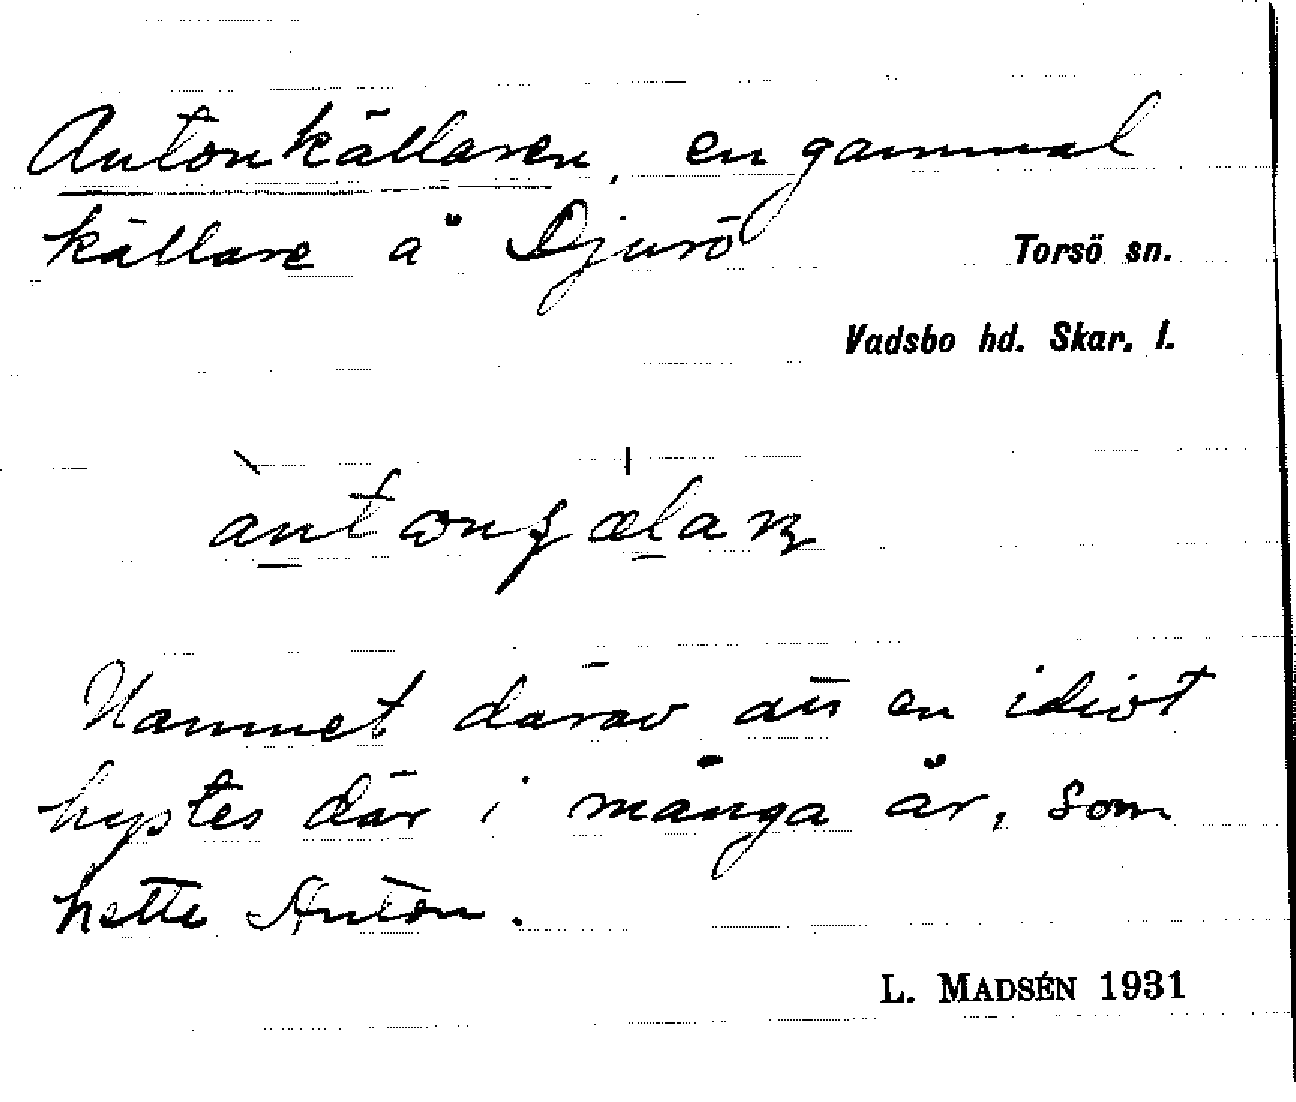 Antonkällaren, en gammal
källare å Djurö
Torsö sn.
Vadsbo hd. Skar. l.
Namnet därav att en idiot
hystes där i många år, som
hette Anton.
L. MADSÉN 1931